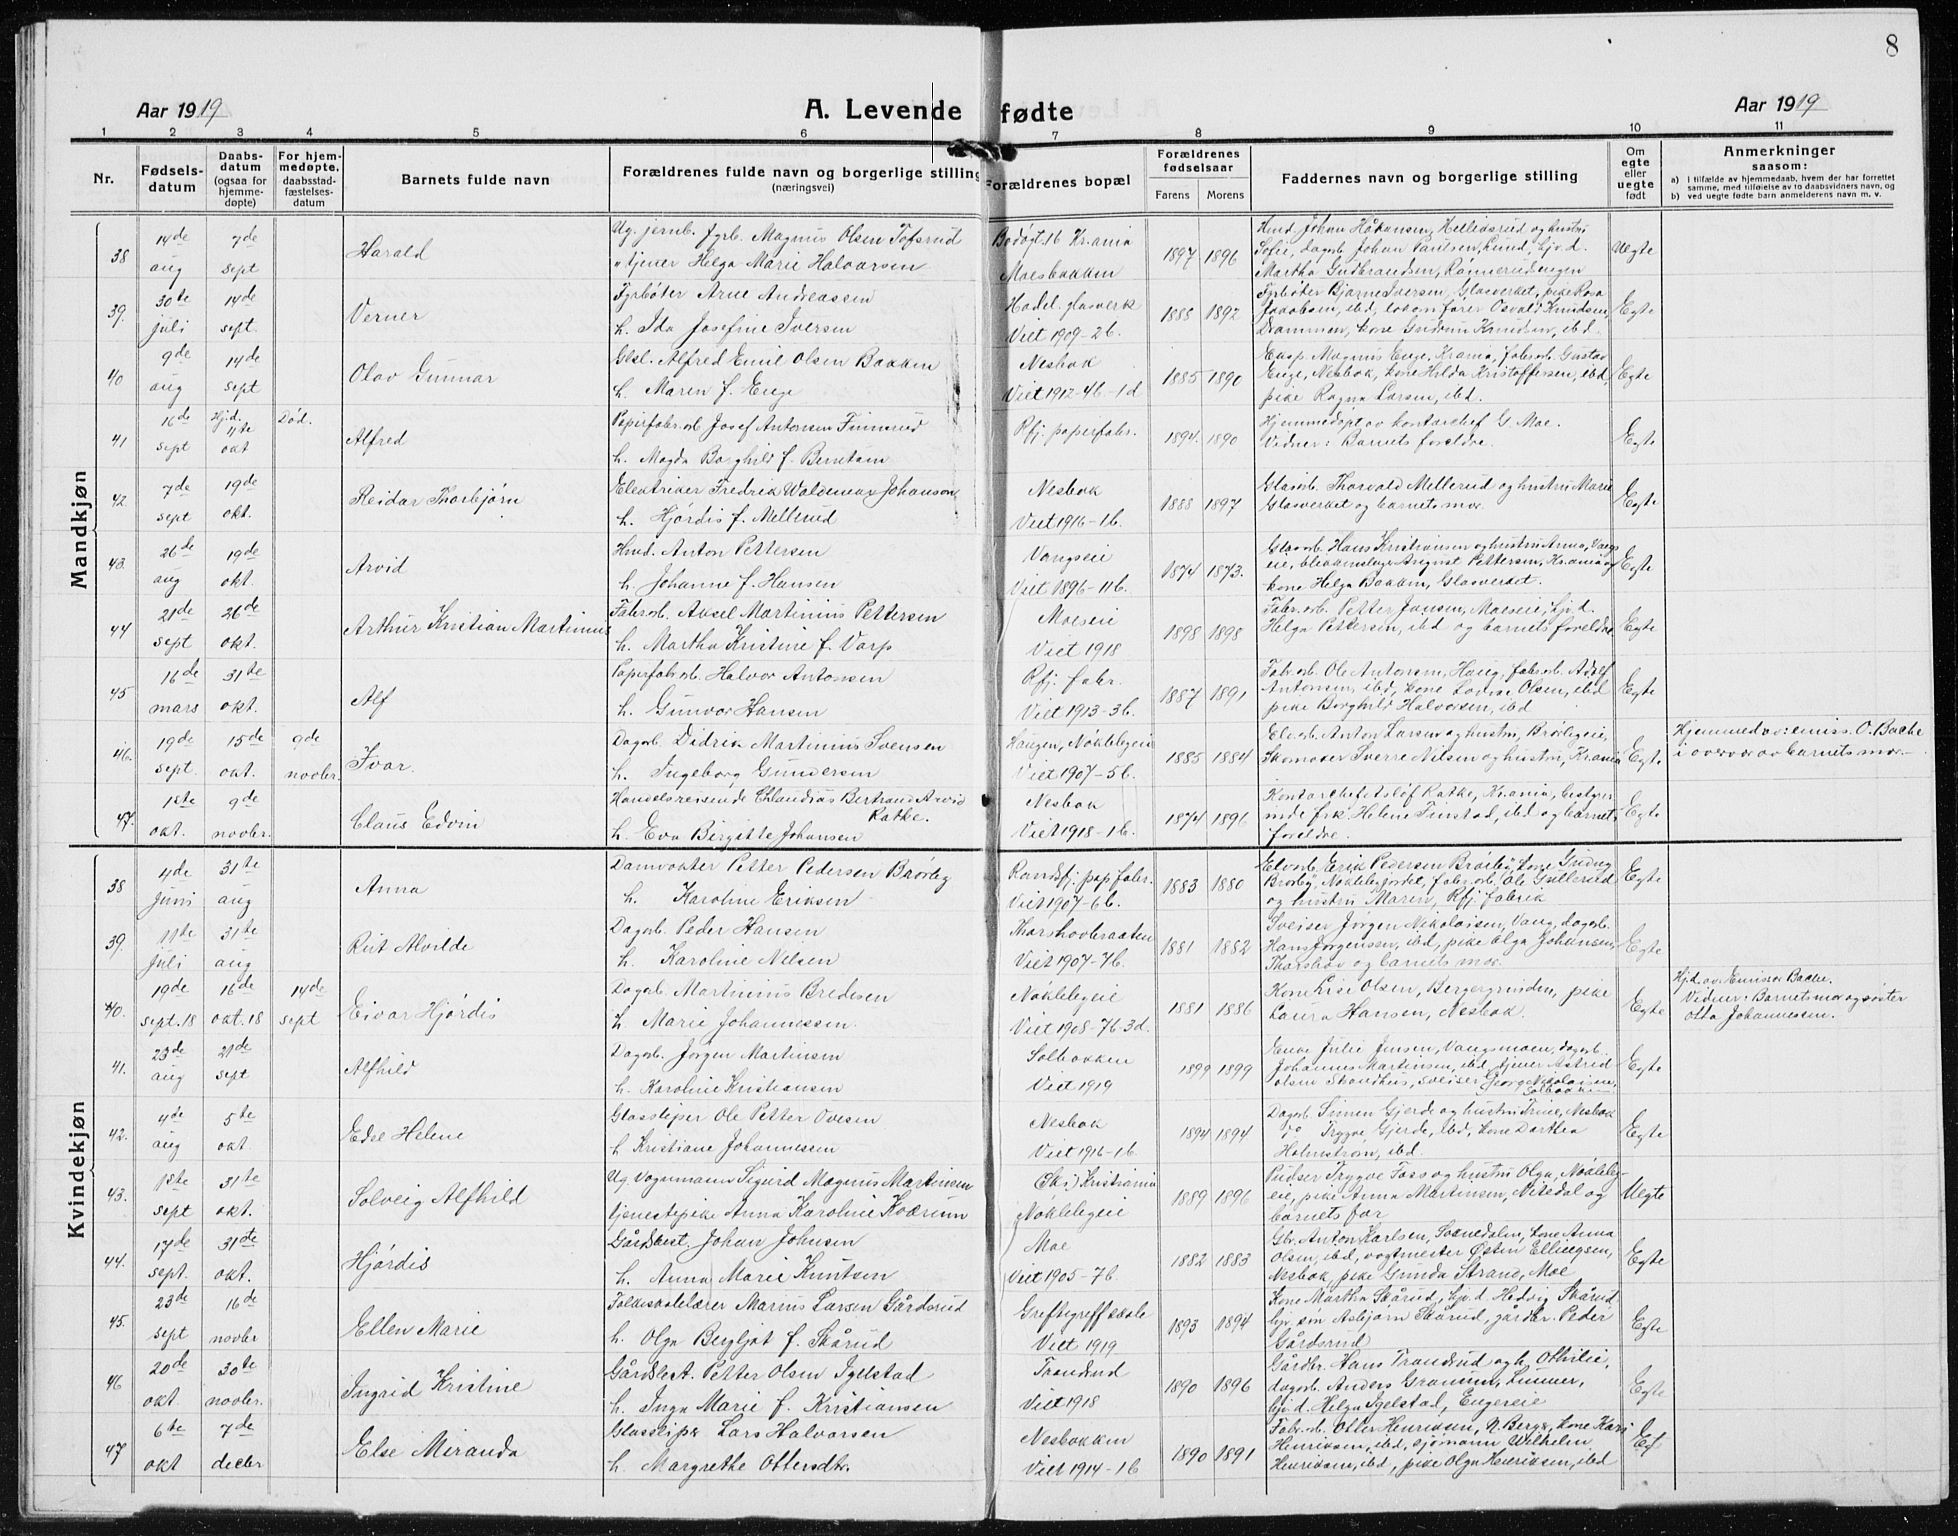 8
Aar 1919
A. Levende fødte
Aar 1919
1 2 3 4 5 6 7 8 9 10 11
Nr.
Fødsels-
datum
Daabs-
datum
(ogsaa for
hjemme-
døpte)
For hjem-
medøpte,
daabsstad-
fæstelses-
datum
Barnets fulde navn
Forældrenes fulde navn og borgerlige stilling
(næringsvei)
Forældrenes bopæl
Forældrenes
fødselsaar
Farens Morens
Faddernes navn og borgerlige stilling
Om
egte
eller
uegte
født
Anmerkninger
saasom:
a) i tilfælde av hjemmedaab, hvem der har forrettet
samme, med tilføielse av to daabsvidners navn, og
b) ved uegte fødte barn anmelderens navn m. v.
Mandkjøn
38 14de aug 7de sept Harald
Ug. jernb. fyrb. Magnus Olsen Tofsrud
tjener Helga Marie Halvorsen
Bodøgt. 16 Kr.ania
Moesbakken
1897 1896
Sofie, dagarb. Johan Paulsen, Lund, tjv. d.
Martha Gudbrandsen, Rønnerudengen
Uegte
39. 30te juli 14de sept. Verner
Fyrbøter Arne Andreassen
h. Ida Josefine Iversen
Hadel. glasverk
Viet 1909-2b.
1888 1892
Fyrbøter Bjarne Iversen, Glasverket, pike Rosa
Jakobsen, ibd, lokomfører Osvald Knudsen,
Drammen, kone Gudrun Knudsen, ibd.
Egte
40 9de aug 14de sept Olav Gunnar
Glsl. Alfred Emil Olsen Bakken
h. Maren f. Enge
Nesbak
Viet 1912-4b-1d
1885 1890
Eksp. Magnus Enge, Kr.ania, fabr.arb. Gustav
Enge, Nesbak, kone Hilda Kristoffersen, ibd,
pike Ragna Larsen, ibd.
Egte
41 16de sept Hjd. 11te okt Død. Alfred
Papirfabr.arb. Josef Antonsen Finnerud
h. Magda Borghild f. Berntsen
Rfj. papirfabr.
1894. 1890
Hjemmedøpt av kontorchef G. Moe.
Vidner: Barnets foreldre.
Egte
42. 7de sept 19de okt. Reidar Thorbjørn
Elektriker Fredrik Waldemar Johanson
h. Hjørdis f. Mellerud
Nesbak
Viet 1916-1b.
1888 1897
Glasarb. Thorvald Mellerud og hustru Marie
Glasverket og barnets mor.
Egte
43. 26de aug 19de okt. Arvid
Hmd. Anton Pettersen
h. Johanne f. Hansen
Vangseie
Viet 1896-11b.
1874 1873.
Glasarb. Hans Kristiansen og hustru Anna, Vangs
eie, blikkenslager August Pettersen, Kr.ania og
kone Helga Bakken, Glasverket.
Egte
44 21de sept 26de okt. Arthur Kristian Martinius
Fabr.arb. Aksel Martinius Pettersen
h. Martha Kristine f. Varp
Moeseie
Viet 1918
1898 1898
Fabr.arb. Petter Jensen, Moeseie, tjv. d.
Helga Pettersen, ibd og barnets foreldre
Egte
45 16de mars 31te okt. Alf
Papirfabr.arb. Halvor Antonsen
h. Gunvor Hansen
Rfj. fabr.
Viet 1913-3b.
1887 1891
Fabr.arb. Ole Antonsen, Haug, fabr.arb. Adolf
Antonsen, ibd, kone Lovise Olsen, ibd
pike Borghild Halvorsen, ibd
Egte
46. 19de sept. 15de okt. 9de novbr. Ivar.
Dagarb. Didrik Martinius Svensen
h. Ingeborg Gundersen
Haugen, Nøklebyeie
Viet 1907-5b.
1885 1884
Elvarb. Anton Larsen og hustru, Brørbyeie,
Skomaker Sverre Nilsen og hustru, Kr.ania
Egte
Hjemmed. av: emiss. O. Bache
i overvær av barnets mor.
47. 1ste okt. 9de novbr. Claus Edvin
Handelsreisende Chlaudius Bertrand Arvid
Ratke.
h. Eva Birgitte Johansen
Nesbak
Viet 1918-1b.
1874 1896
Kontorchef Detlof Ratke, Kr.ania, bestyrer
inde frk. Helene Finstad, ibd og barnets
foreldre.
Egte
Kvindekjøn
38 4de juni 31te aug Anna
Damvokter Petter Pedersen Brørby
h. Karoline Eriksen
Randsfj. pap. fabr.
Viet 1907-6b.
1883 1880
Elvarb. Erik Pedersen Brørby, kone Gudny
Brørby, Nøklebyjordet, fabr.arb. Ole Gullerud
og hustru Maren, Rfj. fabrik
Egte
39. 11te juli 31te aug Rut Alvilde
Dagarb. Peder Hansen
h. Karoline Nilsen
Thorshovbraaten
Viet 1907-7b.
1881 1882
Sveiser Jørgen Nikolaisen, Vang, dagarb.
Hans Jørgensen, ibd, pike Olga Johansen,
Thorshov og barnets mor.
Egte
40. 19de sept. 18 16de okt. 18 14de sept Eivor Hjørdis
Dagarb. Martinius Bredesen
h. Marie Johannessen
Nøklebyeie
Viet 1908-7b.3d.
1881 1886
Kone Lise Olsen, Bergergrinden, pike
Laura Hansen, Nesbak.
Egte
Hjd. av Emissær Bache.
Vidner: Barnets mor og søster
Otta Johannessen.
41. 23de aug 21de sept Alfhild
Dagarb. Jørgen Martinsen
h. Karoline Kristiansen
Solbakken
Viet 1919
1899 1899
Enke Julie Jensen, Vangsmoen, dagarb.
Johannes Martinsen, ibd, tjener Astrid
Olsen Skovdhus, sveiser Georg Nikolaisen,
Solbakken
Egte
42. 4de aug 5te okt Edse Helene
Glassliper Ole Petter Ovesen
h Kristiane Johannessen
Nesbak
Viet 1916-1b.
1894 1894
Dagarb. Simen Gjerde og hustru Trine, Nesbak
do Trygve Gjerde, ibd, kone Dorthea
Holmstrøm, ibd.
Egte
43. 1ste sept 31te okt. Solveig Alfhild
Ug. Vognmann Sigurd Magnus Martinsen
tjenestepike Anna Karoline Kværum
Ski, Kristiania
Nøklebyeie
1889 1896
Pudser Trygve Foss og hustru Olga, Nøkleby-
eie, pike Anna Martinsen, Nitedal og
barnets far
Uegte
44. 17de sept. 31de okt. Hjørdis
Gårdbest. Johan Johnsen
h. Anna Marie Knutsen
Moe
Viet 1905-7b.
1882 1883
Gbr. Anton Karlsen, Sognedalen, kone Anna
Olsen, ibd, vogtmester Østen Ellingsen,
Nesbak, pike Gunda Strand, Moe
Egte
45. 23de sept 16de novbr Ellen Marie
Folkeskolelærer Marius Larsen Gårdsrud
h. Olga Bergljot f. Skårud
Greftegreff skole
Viet 1919
1893 1894
Kone Martha Skårud, tjv. d. Hedvig Skårud
tjv. søn Asbjørn Skårud, gårdbr. Peder
Gårdsrud
Egte
46 20de okt 30te novbr. Ingrid Kristine
Gårdsbest. Petter Olsen Igelstad
h. Inga Marie f. Kristiansen
Trondrud
Viet 1918
1890 1896
Gårdbr. Hans Trondrud og h. Othilie,
dagarb. Anders Gramm, Lunner,
tjv. d. Helga Igelstad, Engereie
Egte
47 6te okt 7de decbr Else Miranda
Glassliper Lars Halvorsen
h. Margrethe Ottersdtr.
Nesbakken
Viet 1914-1b
1890 1891
Fabr.arb. Otter Henriksen, N. Berg, kone Kari
Henriksen, ibd, sjømann Wilhelm
Henriksen, ibd, pike Olga Henriksen, ibd
Eg